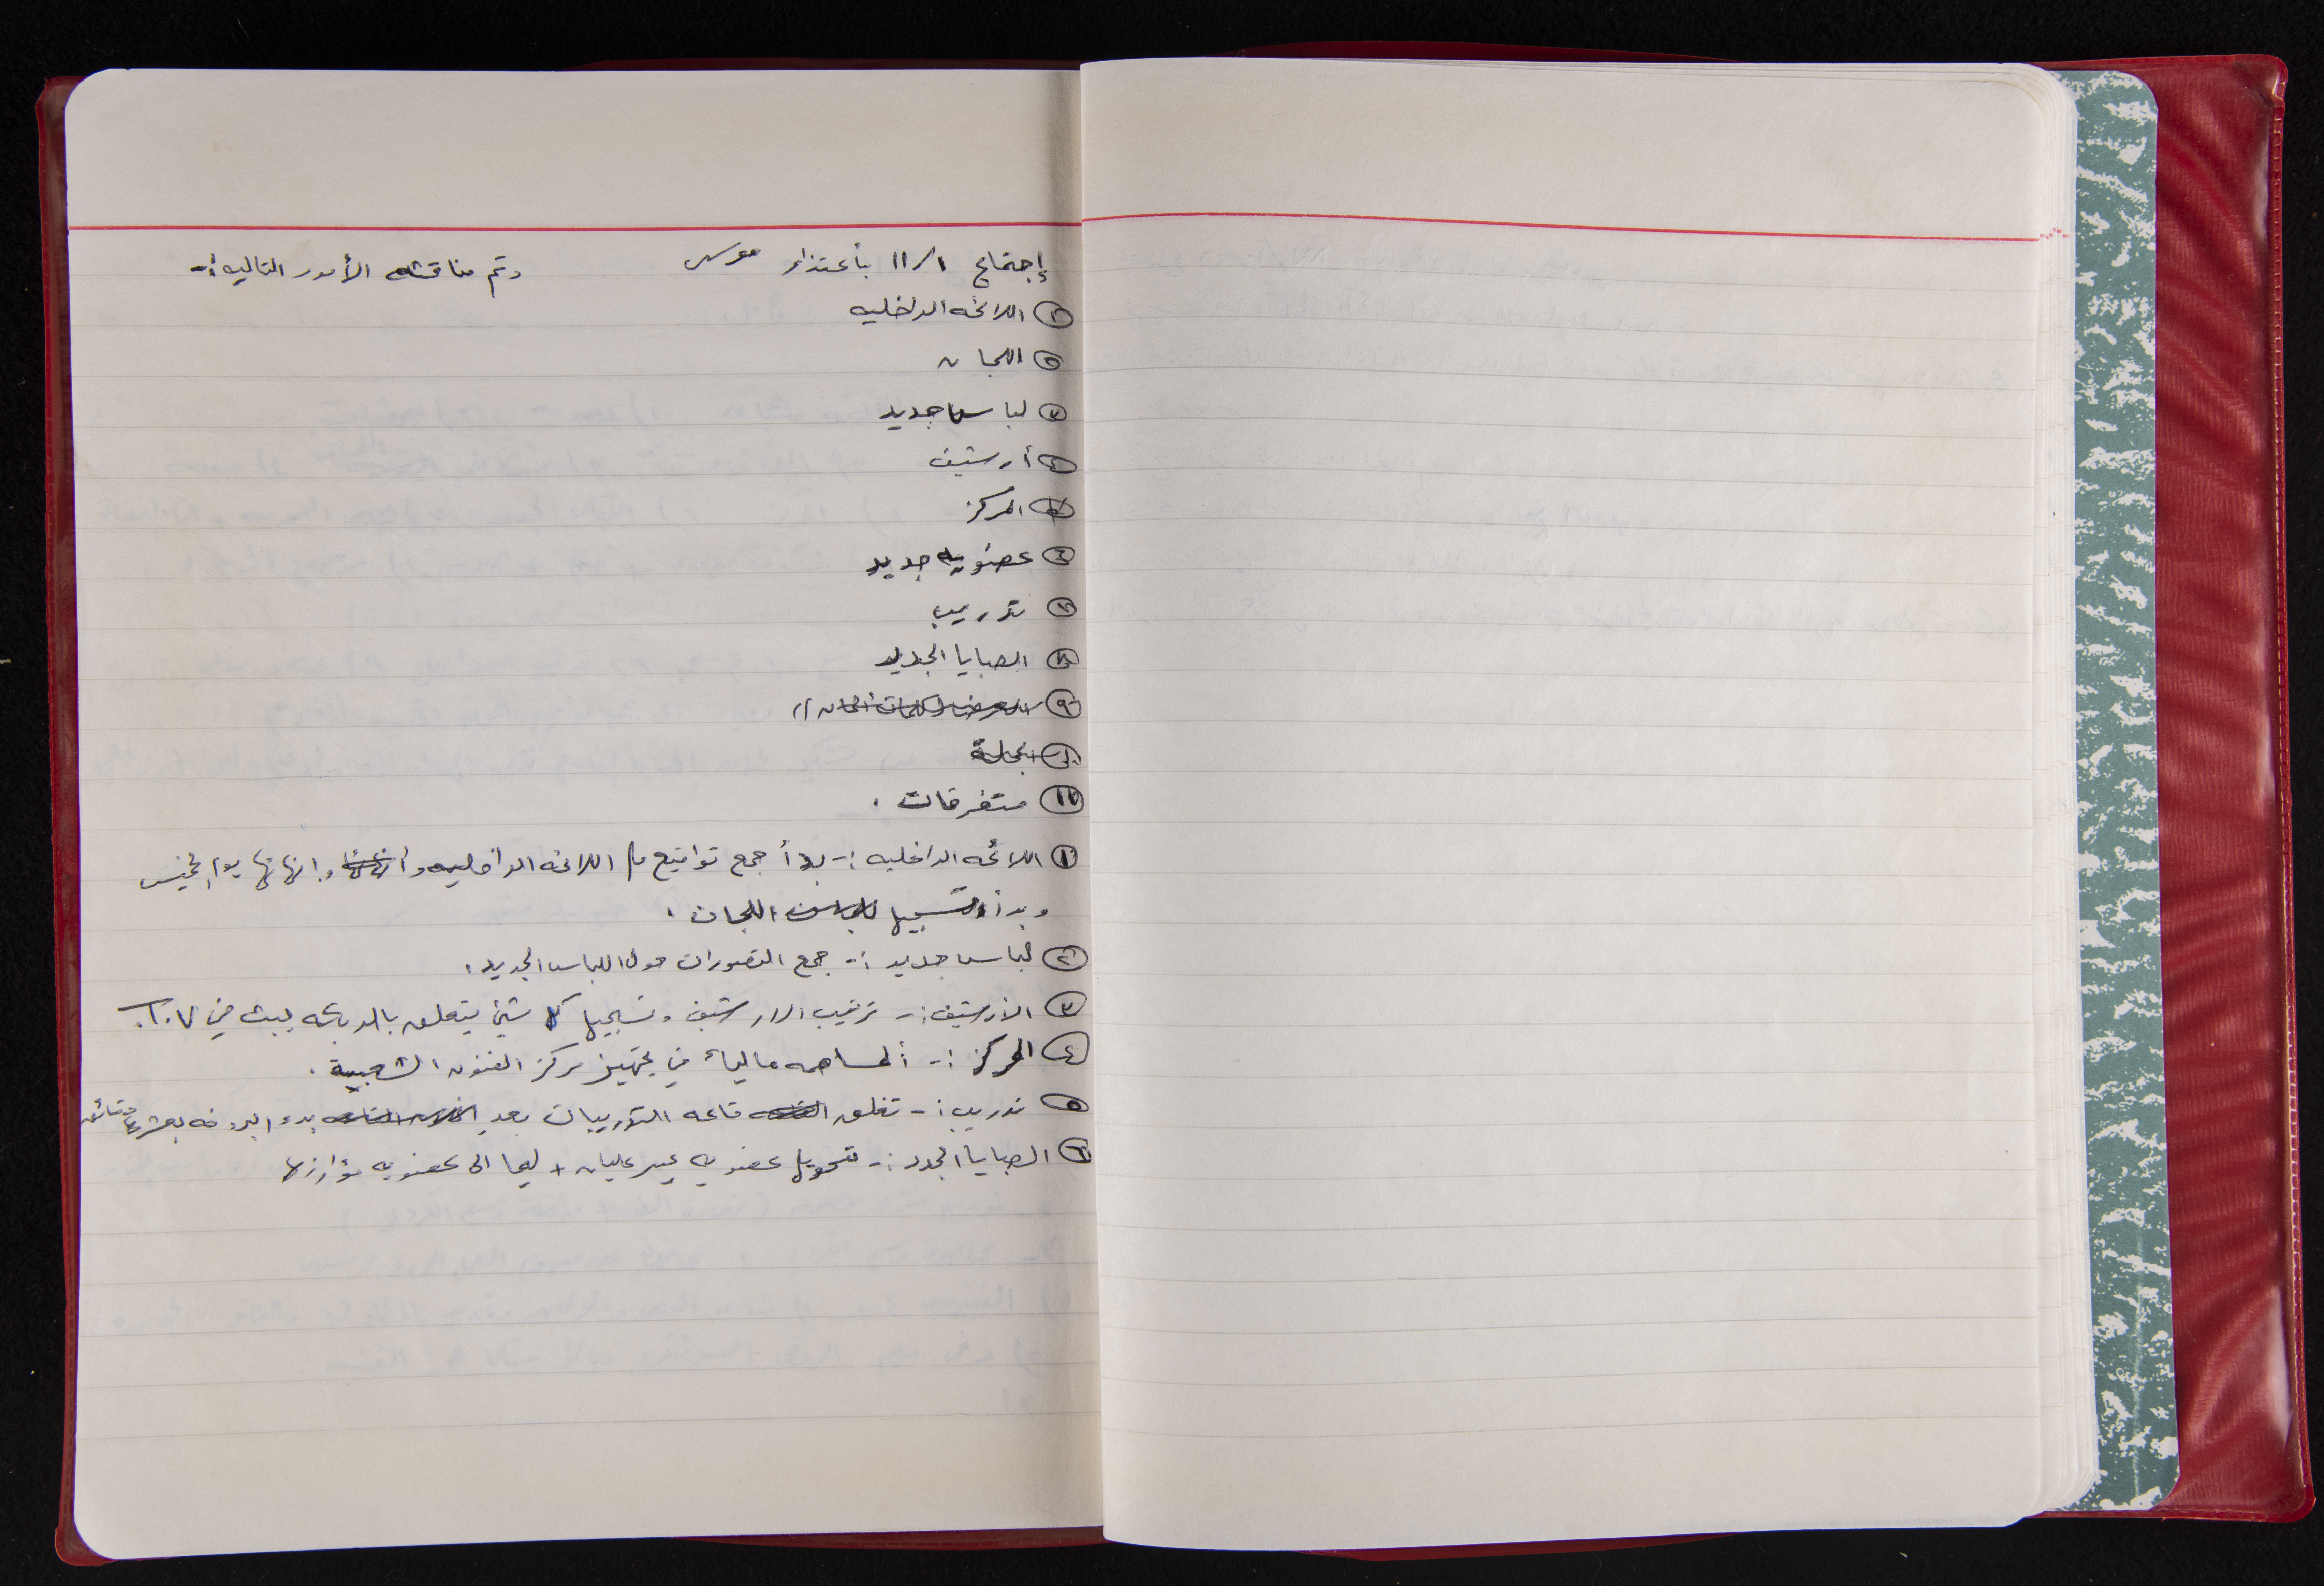 إجتماع ١/١١ بأعتذار موسى وتم مناقشه الأمور التاليه :-
① اللائحه الداخليه
② اللجان
③ لباس جديد
④ أرشيف
⑤ المركز
⑥ عضويه جديد
⑦ تدريب
⑧ الصبايا الجديد
⑨
⑩
⑪ متفرقات .
① اللائحه الداخليه :- بدأ جمع تواقيع اللائحه الداخليه و انهائها يوم الخميس
وبدأ اللجان .
② لباس جديد :- جمع التصورات حول اللباس الجديد .
③ الأرشيف :- ترتيب الارشيف وتسجيل كل شيئ يتعلق
④ المركز :- ألمساهمه مالياً في تجهيز مركز الفنون الشعبية .
⑤ تدريب :- تغلق قاعه التدريبات بعد بدء البروفه بعشر دقائق
⑥ الصبايا الجدد :- تحويل عضويه عبير عليان + ليما الى عضويه مؤازره